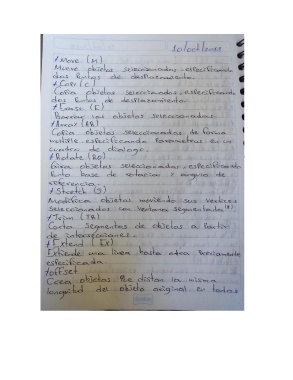 10/oct/2022
*Move (M)
Mueve objetos seleccionados especificando
dos puntos de desplazamiento.
*Copy (C)
Copia objetos seleccionados especificando
dos puntos de desplazamiento
*Erase (E)
Borrar los objetos seleccionados.
*Array (AR)
Copia objetos seleccionados de forma
multiple especificando parametros en un
cuadro de dialogo.
*Rotate (RO)
Gira objetos seleccionados especificando
punto base de rotacion y angulo de
referencia.
*Stretch (S)
Modifica objetos moviendo sus vertices
seleccionados con ventana segmentada
*Trim (TR)
Corta segmentos de objetos a partir
de intersecciones.
*Extend (Ex)
Extiende una linea hasta otra previamente
especificada
*offset
Crea objetos que distan la misma
longitud del objeto original en todas